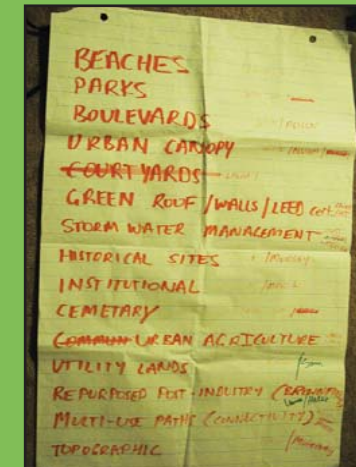 BEACHES
PARKS
BOULEVARDS
URBAN CANOPY
COURTYARDS
GREEN ROOF /WALLS/LEED Cert.
STORM WATER MANAGEMENT
HISTORICAL SITES
INSTITUTIONAL
CEMETARY
COMMUN URBAN AGRICULTURE
UTILITY LANDS
REPURPOSED POST-INDUSTRY
MULTI-USE PATHS (CONNECTIVITY)
TOPOGRAPHIC